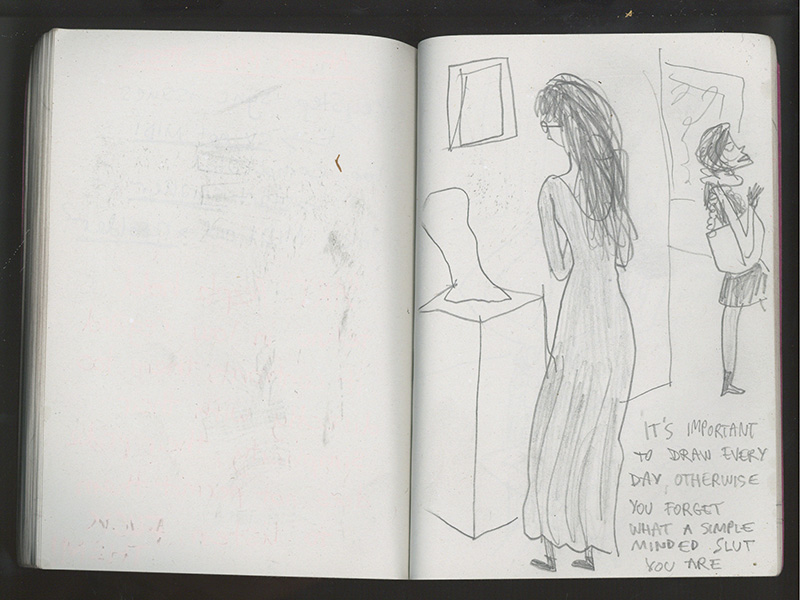 IT'S IMPORTANT
TO DRAW EVERY
DAY, OTHERWISE
YOU FORGET
WHAT A SIMPLE
MINDED SLUT
YOU ARE.